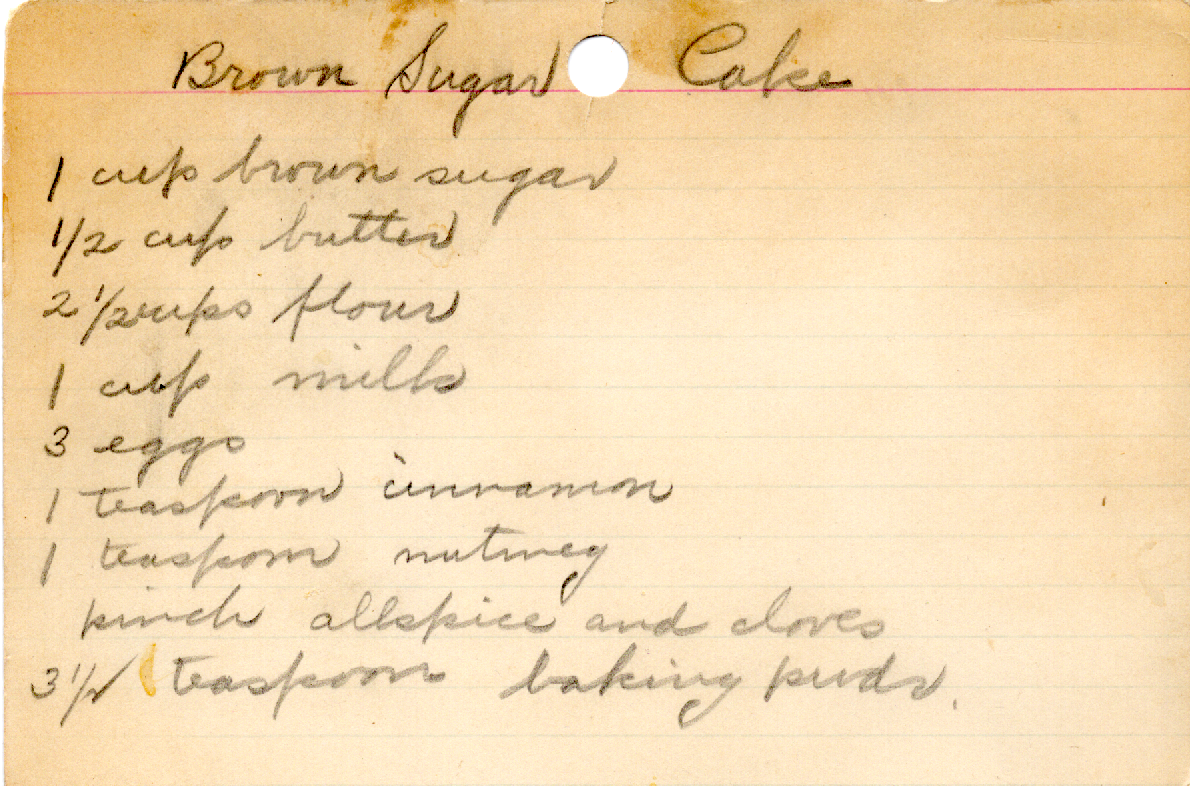 Brown Sugar Cake
1 cup brown sugar
1/2 cup butter
2 1/2 cups flour
1 cup milk
3 eggs
1 teaspoon cinnamon
1 teaspoon nutmeg
pinch allspice and cloves
3 1/2 teaspoon baking pwdr.